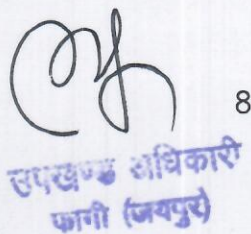 8
उपखण्ड अधिकारी
फागी (जयपुर)